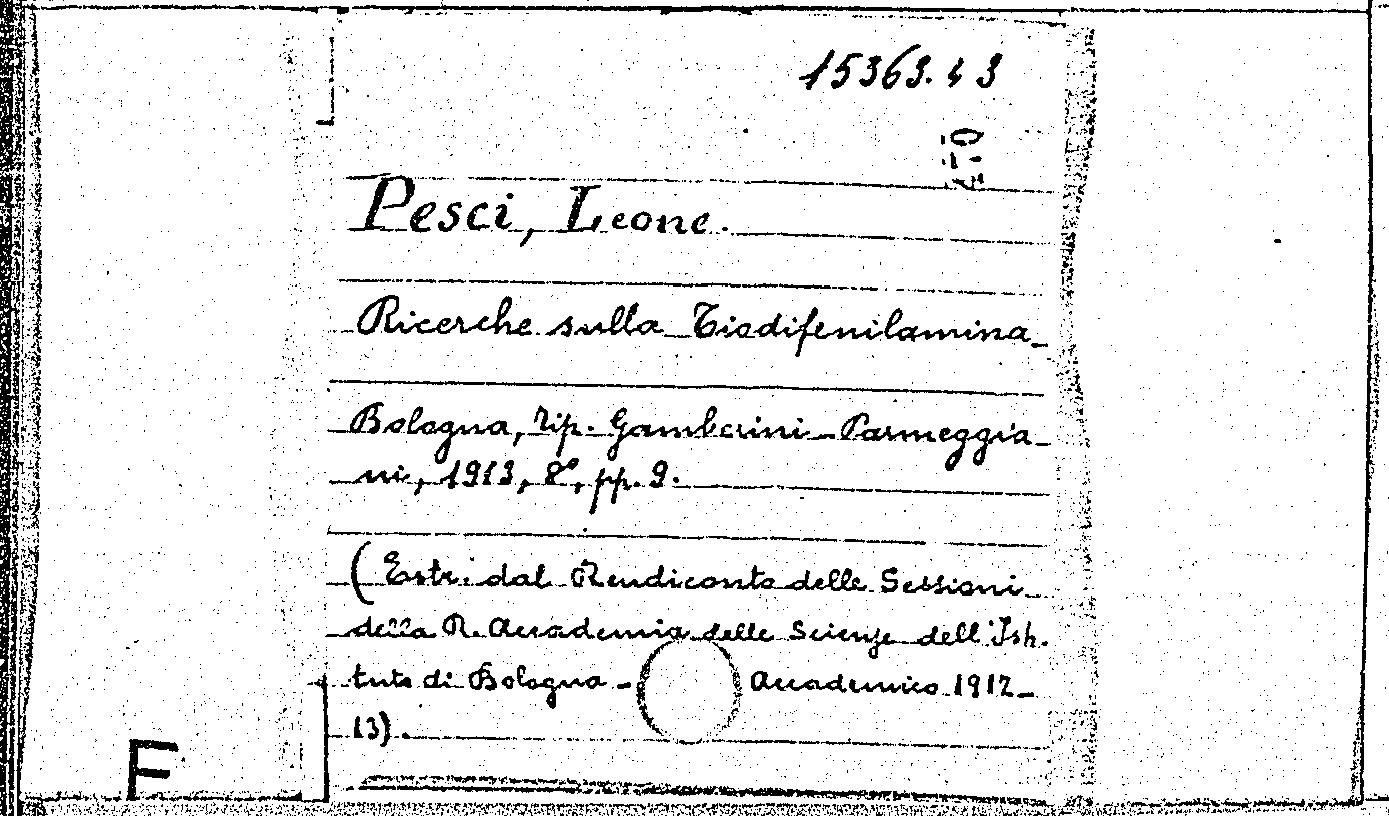 15363.43
Pesci, Leone.
Ricerche sulla Tiodifenilamina_
Bologna, Tip. Gamberini-Parmeggia-
ni, 1913, 8°, pp. 9.
(Estr. dal Rendiconto delle Sessioni
della R. Accademia delle Scienze dell'Isti-
tuto di Bologna - Accademico 1912-
13).
F